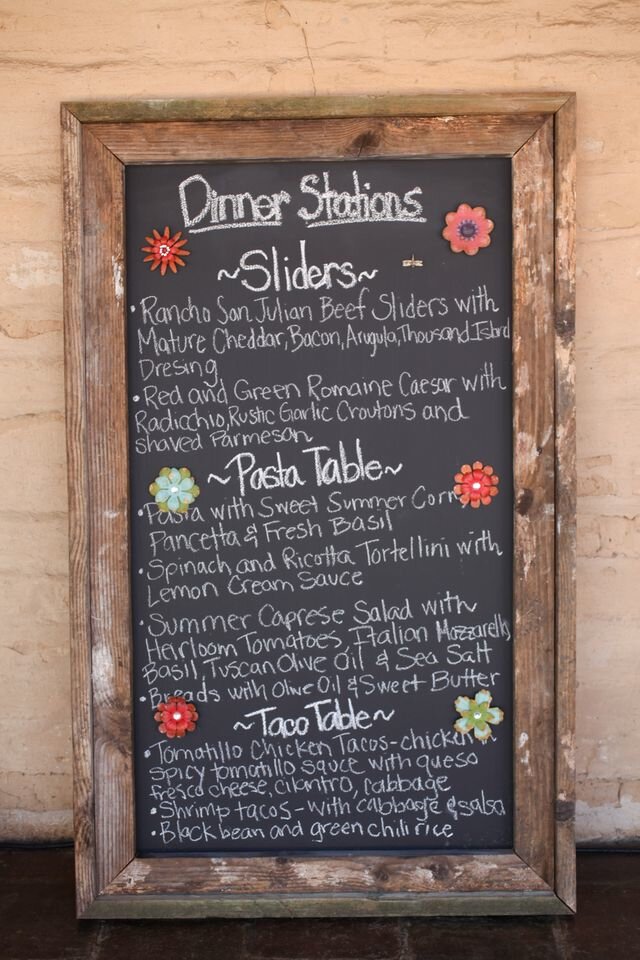 Dinner Stations
~Sliders~
• Rancho San Julian Beef Sliders with
Mature Cheddar, Bacon, Arugula, Thousand Island
Dresing
• Red and Green Romaine Caesar with
Radicchio, Rustic Garlic Croutons and
shaved Parmesan
~Pasta Table~
• Pasta with Sweet Summer Corn,
Pancetta & Fresh Basil
• Spinach and Ricotta Tortellini with
Lemon Cream Sauce
• Summer Caprese Salad with
Heirloom Tomatoes Italian Mozzarella
Basil Tuscan Olive Oil & Sea Salt
• Breads with Olive Oil & Sweet Butter
~Taco Table~
• Tomatillo Chicken Tacos - chicken in
spicy tomatillo sauce with queso
fresco cheese, cilantro, cabbage
• Shrimp tacos - with cabbage & salsa
• Black bean and green chili rice